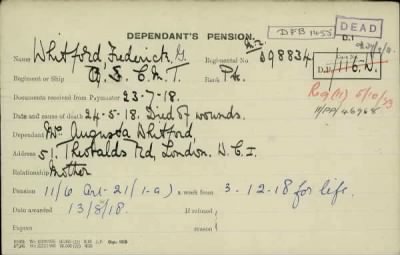 DEPENDANT'S PENSION.
DFB 1455
DEAD
D.1
Name Whitford, Frederick G. Regimental No. M2 098834
D.P. 116.D.
Regiment or Ship A. S. C. M. T. Rank Pte.
Documents received from Paymaster 23-7-18.
Date and cause of death 24-5-18. Died of wounds.
Reg (11) 5/10/23
11/PP/46968.
Dependant Mrs Augusta Whitford
Address 51, Theobalds Rd, London. W.C.1.
Relationship Mother
Pension 11/6 Art-21 (1-a) a week from 3-12-18 for life.
Date awarded 13/8/18. If refused,
Expires reason